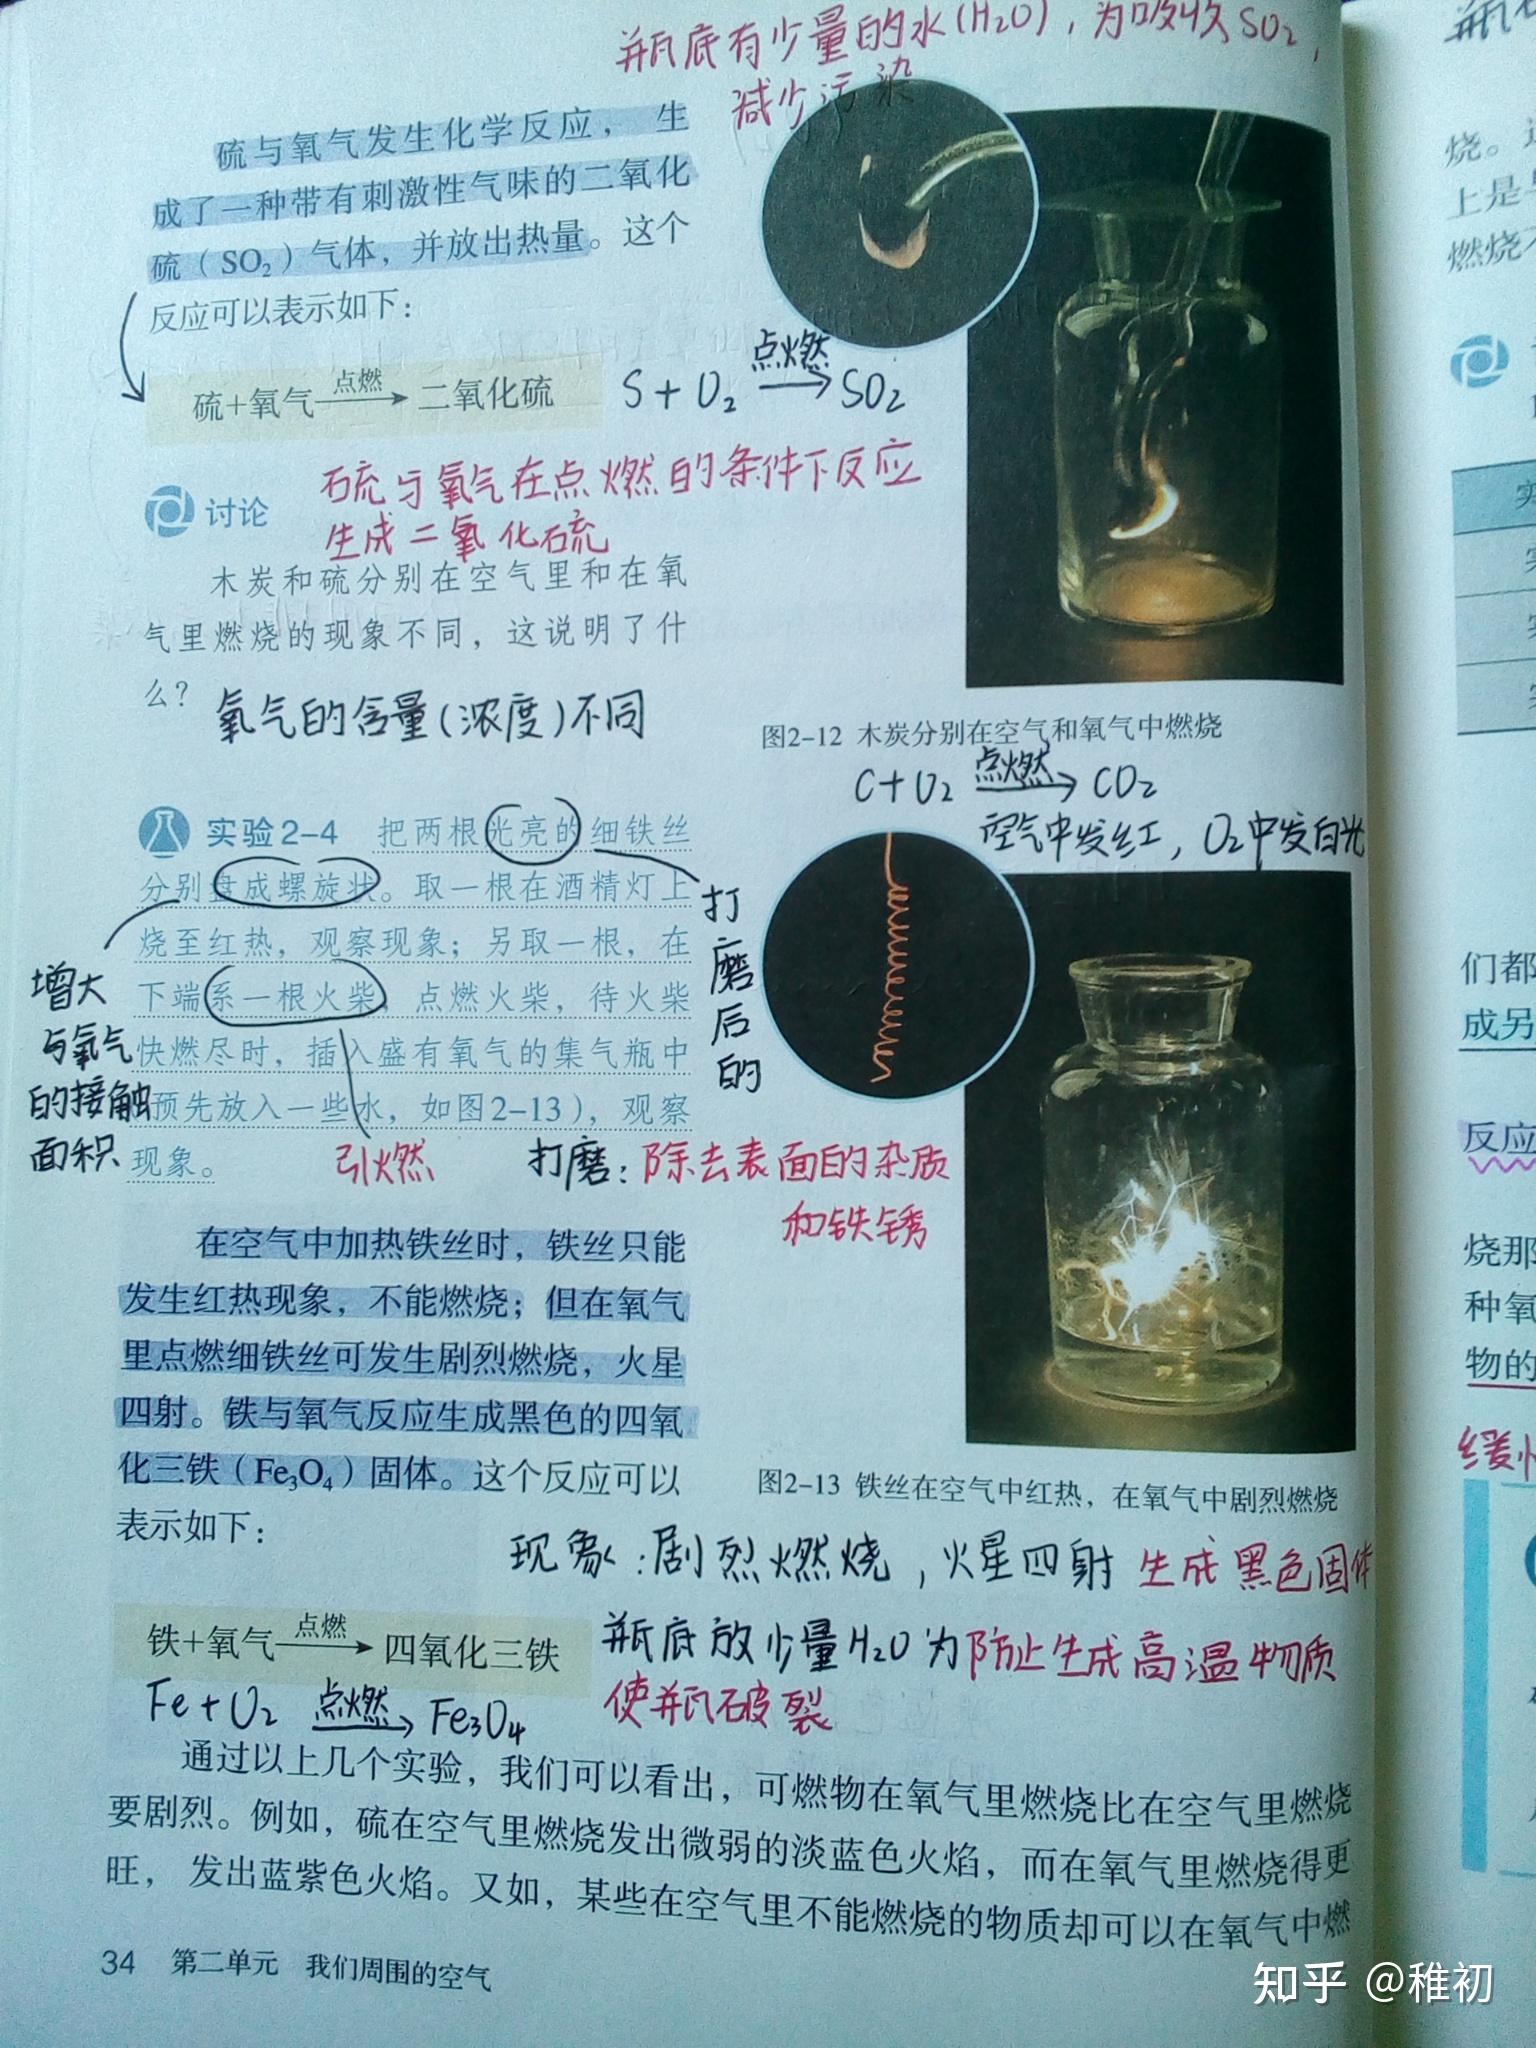 瓶底有少量的水(H₂O),为吸收SO₂,
减少污染
硫与氧气发生化学反应，生
成了一种带有刺激性气味的二氧化
硫（SO₂）气体，并放出热量。这个
反应可以表示如下：
硫+氧气 点燃→ 二氧化硫
S+O₂ 点燃→ SO₂
硫与氧气在点燃的条件下反应
生成二氧化硫
讨论
木炭和硫分别在空气里和在氧
气里燃烧的现象不同，这说明了什
么？
氧气的含量(浓度)不同
图2-12 木炭分别在空气和氧气中燃烧
C+O₂ 点燃→ CO₂
空气中发红,O₂中发白光
实验2-4 把两根光亮的细铁丝
分别盘成螺旋状。取一根在酒精灯上
烧至红热，观察现象；另取一根，在
下端系一根火柴，点燃火柴，待火柴
快燃尽时，插入盛有氧气的集气瓶中
预先放入一些水，如图2-13），观察
现象。
打
磨
后
的
增大
与氧气
的接触
面积
引燃
打磨:除去表面的杂质
和铁锈
在空气中加热铁丝时，铁丝只能
发生红热现象，不能燃烧；但在氧气
里点燃细铁丝可发生剧烈燃烧，火星
四射。铁与氧气反应生成黑色的四氧
化三铁（Fe₃O₄）固体。这个反应可以
表示如下：
图2-13 铁丝在空气中红热，在氧气中剧烈燃烧
现象:剧烈燃烧,火星四射 生成黑色固体
铁+氧气 点燃→ 四氧化三铁
Fe+O₂ 点燃→ Fe₃O₄
瓶底放少量H₂O为防止生成高温物质
使瓶破裂
通过以上几个实验，我们可以看出，可燃物在氧气里燃烧比在空气里燃烧
要剧烈。例如，硫在空气里燃烧发出微弱的淡蓝色火焰，而在氧气里燃烧得更
旺，发出蓝紫色火焰。又如，某些在空气里不能燃烧的物质却可以在氧气中燃
34 第二单元 我们周围的空气
烧。
上是
燃烧
们都
成另
反应
烧那
种氧
物的
缓
知乎 @稚初